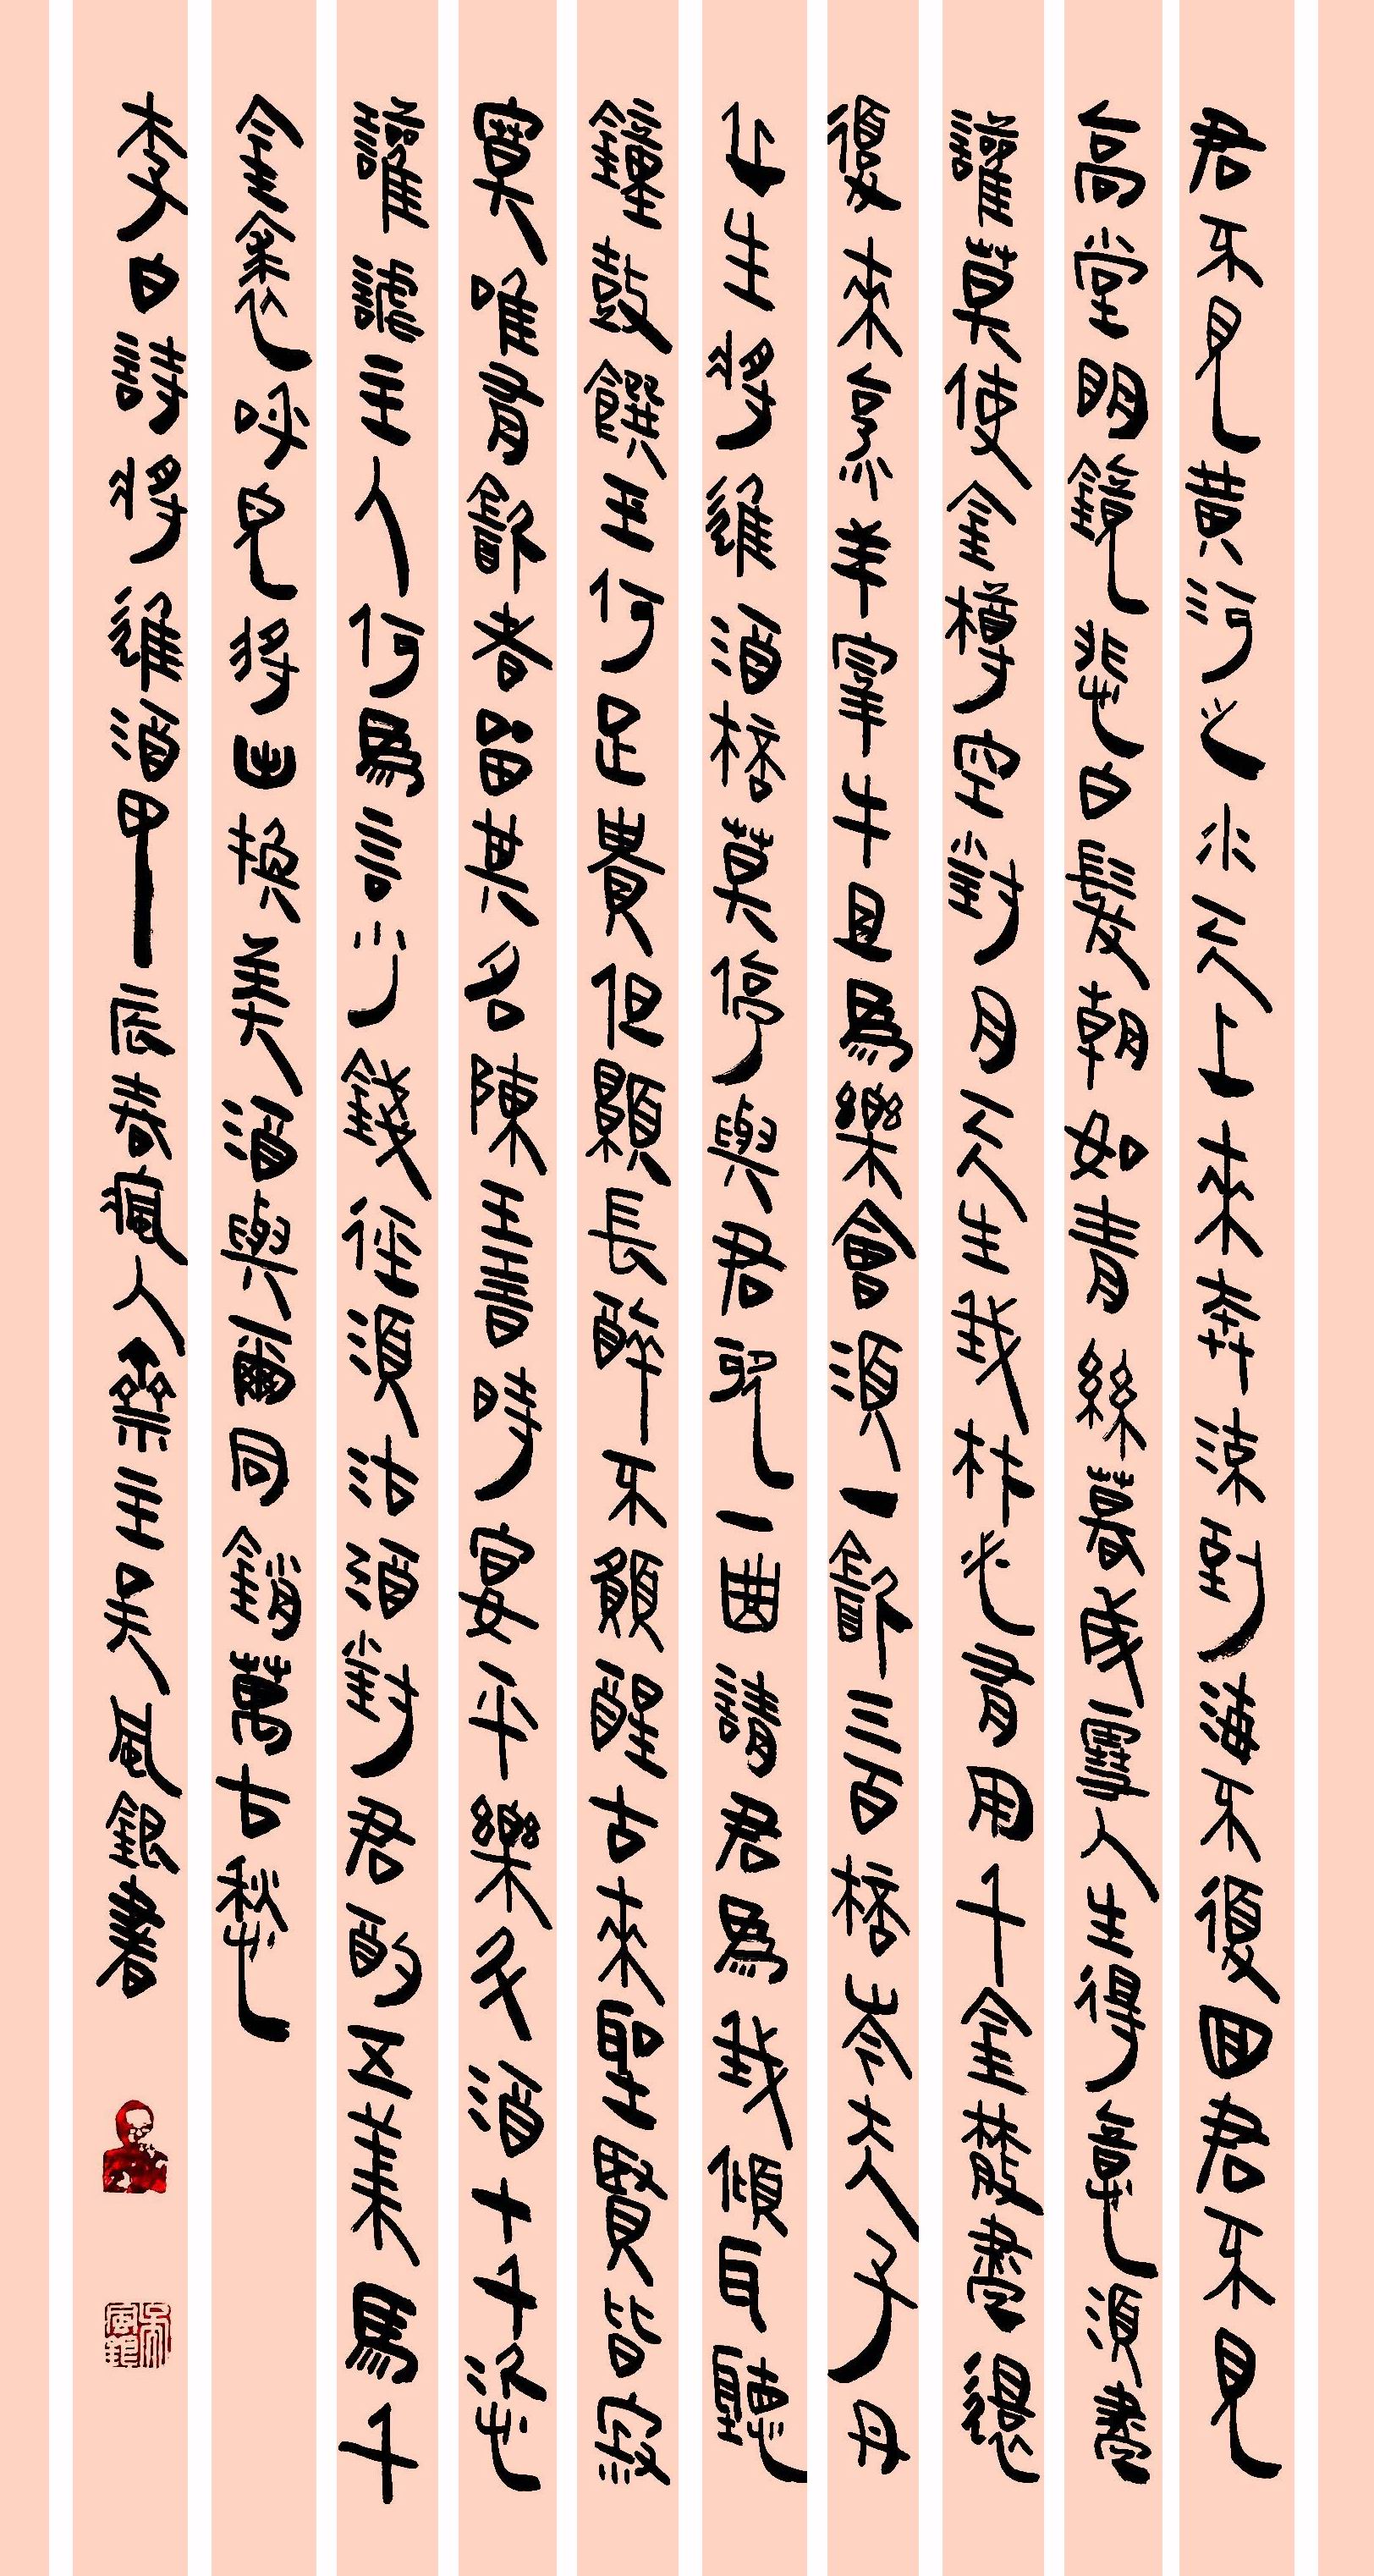 君不見黃河之水天上來奔流到海不復回君不見
高堂明鏡悲白髮朝如青絲暮成雪人生得意須盡
讙莫使金樽空對月天生我材必有用千金散盡還
復來烹羊宰牛且為樂會須一飲三百桮岑夫子丹
丘生將進酒桮莫停與君歌一曲請君為我傾耳聽
鐘鼓饌玉何足貴但願長醉不願醒古來聖賢皆寂
寞唯有飲者留其名陳王昔時宴平樂斗酒十千恣
讙謔主人何為言少錢徑須沽酒對君酌五花馬千
金裘呼兒將出換美酒與爾同銷萬古愁
李白詩將進酒甲辰春瘋人築主吳風銀書